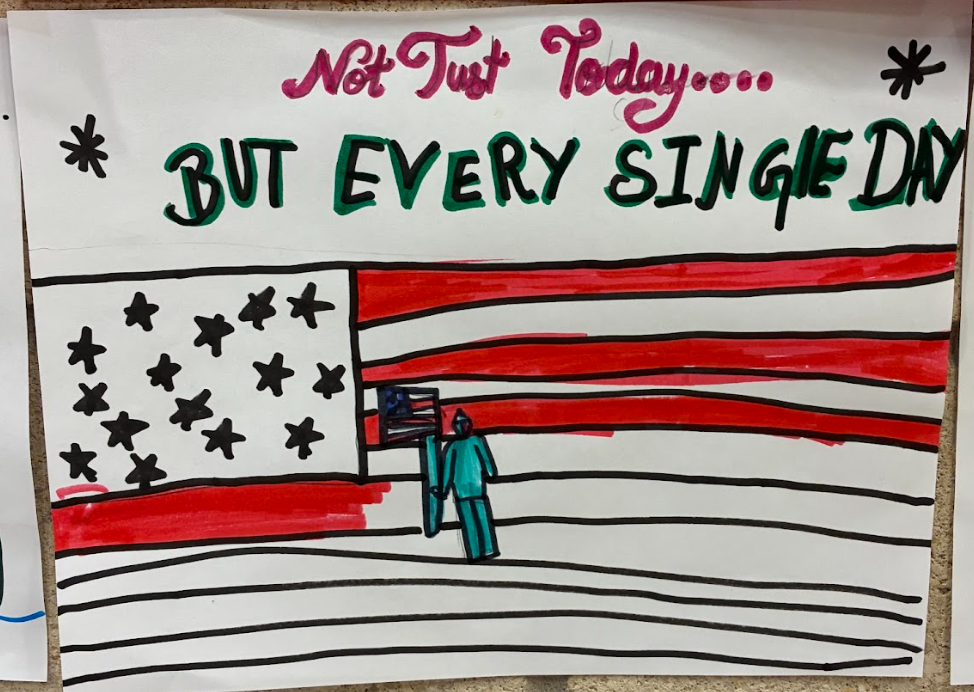 Not Just Today.....
BUT EVERY SINGlE DAY